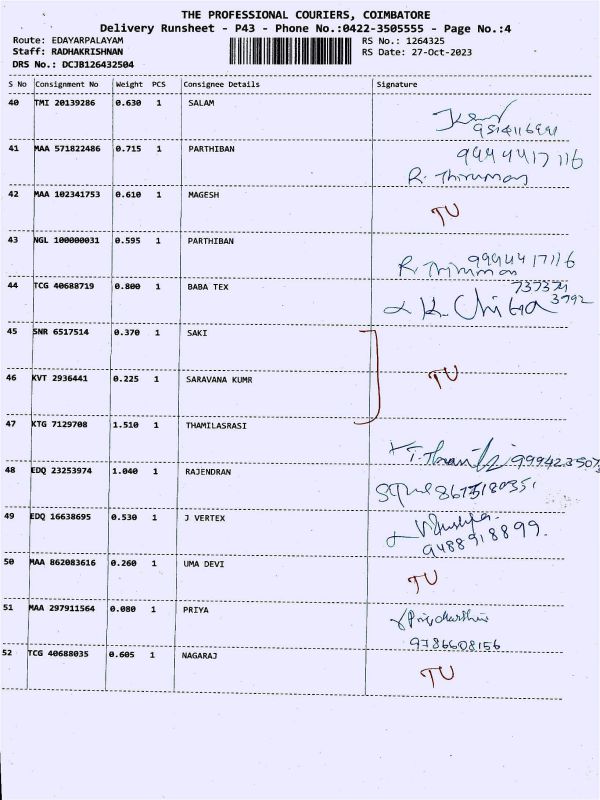 THE PROFESSIONAL COURIERS, COIMBATORE
Delivery Runsheet - P43 - Phone No.:0422-3505555 - Page No.:4
Route: EDAYARPALAYAM RS No.: 1264325
Staff: RADHAKRISHNAN RS Date: 27-Oct-2023
DRS No.: DCJB126432504
S No Consignment No Weight PCS Consignee Details Signature
40 TMI 20139286 0.630 1 SALAM
41 MAA 571822486 0.715 1 PARTHIBAN 9944417116
R.
42 MAA 102341753 0.610 1 MAGESH TU
43 NGL 100000031 0.595 1 PARTHIBAN 9994417116
R.
44 TCG 40688719 0.800 1 BABA TEX 737371
K. Chitra 3792
45 SNR 6517514 0.370 1 SAKI
46 KVT 2936441 0.225 1 SARAVANA KUMR TU
47 KTG 7129708 1.510 1 THAMILASRASI
48 EDQ 23253974 1.040 1 RAJENDRAN
49 EDQ 16638695 0.530 1 J VERTEX
9488918899.
50 MAA 862083616 0.260 1 UMA DEVI TU
51 MAA 297911564 0.080 1 PRIYA Priyadarshini
9786608156
52 TCG 40688035 0.605 1 NAGARAJ TU